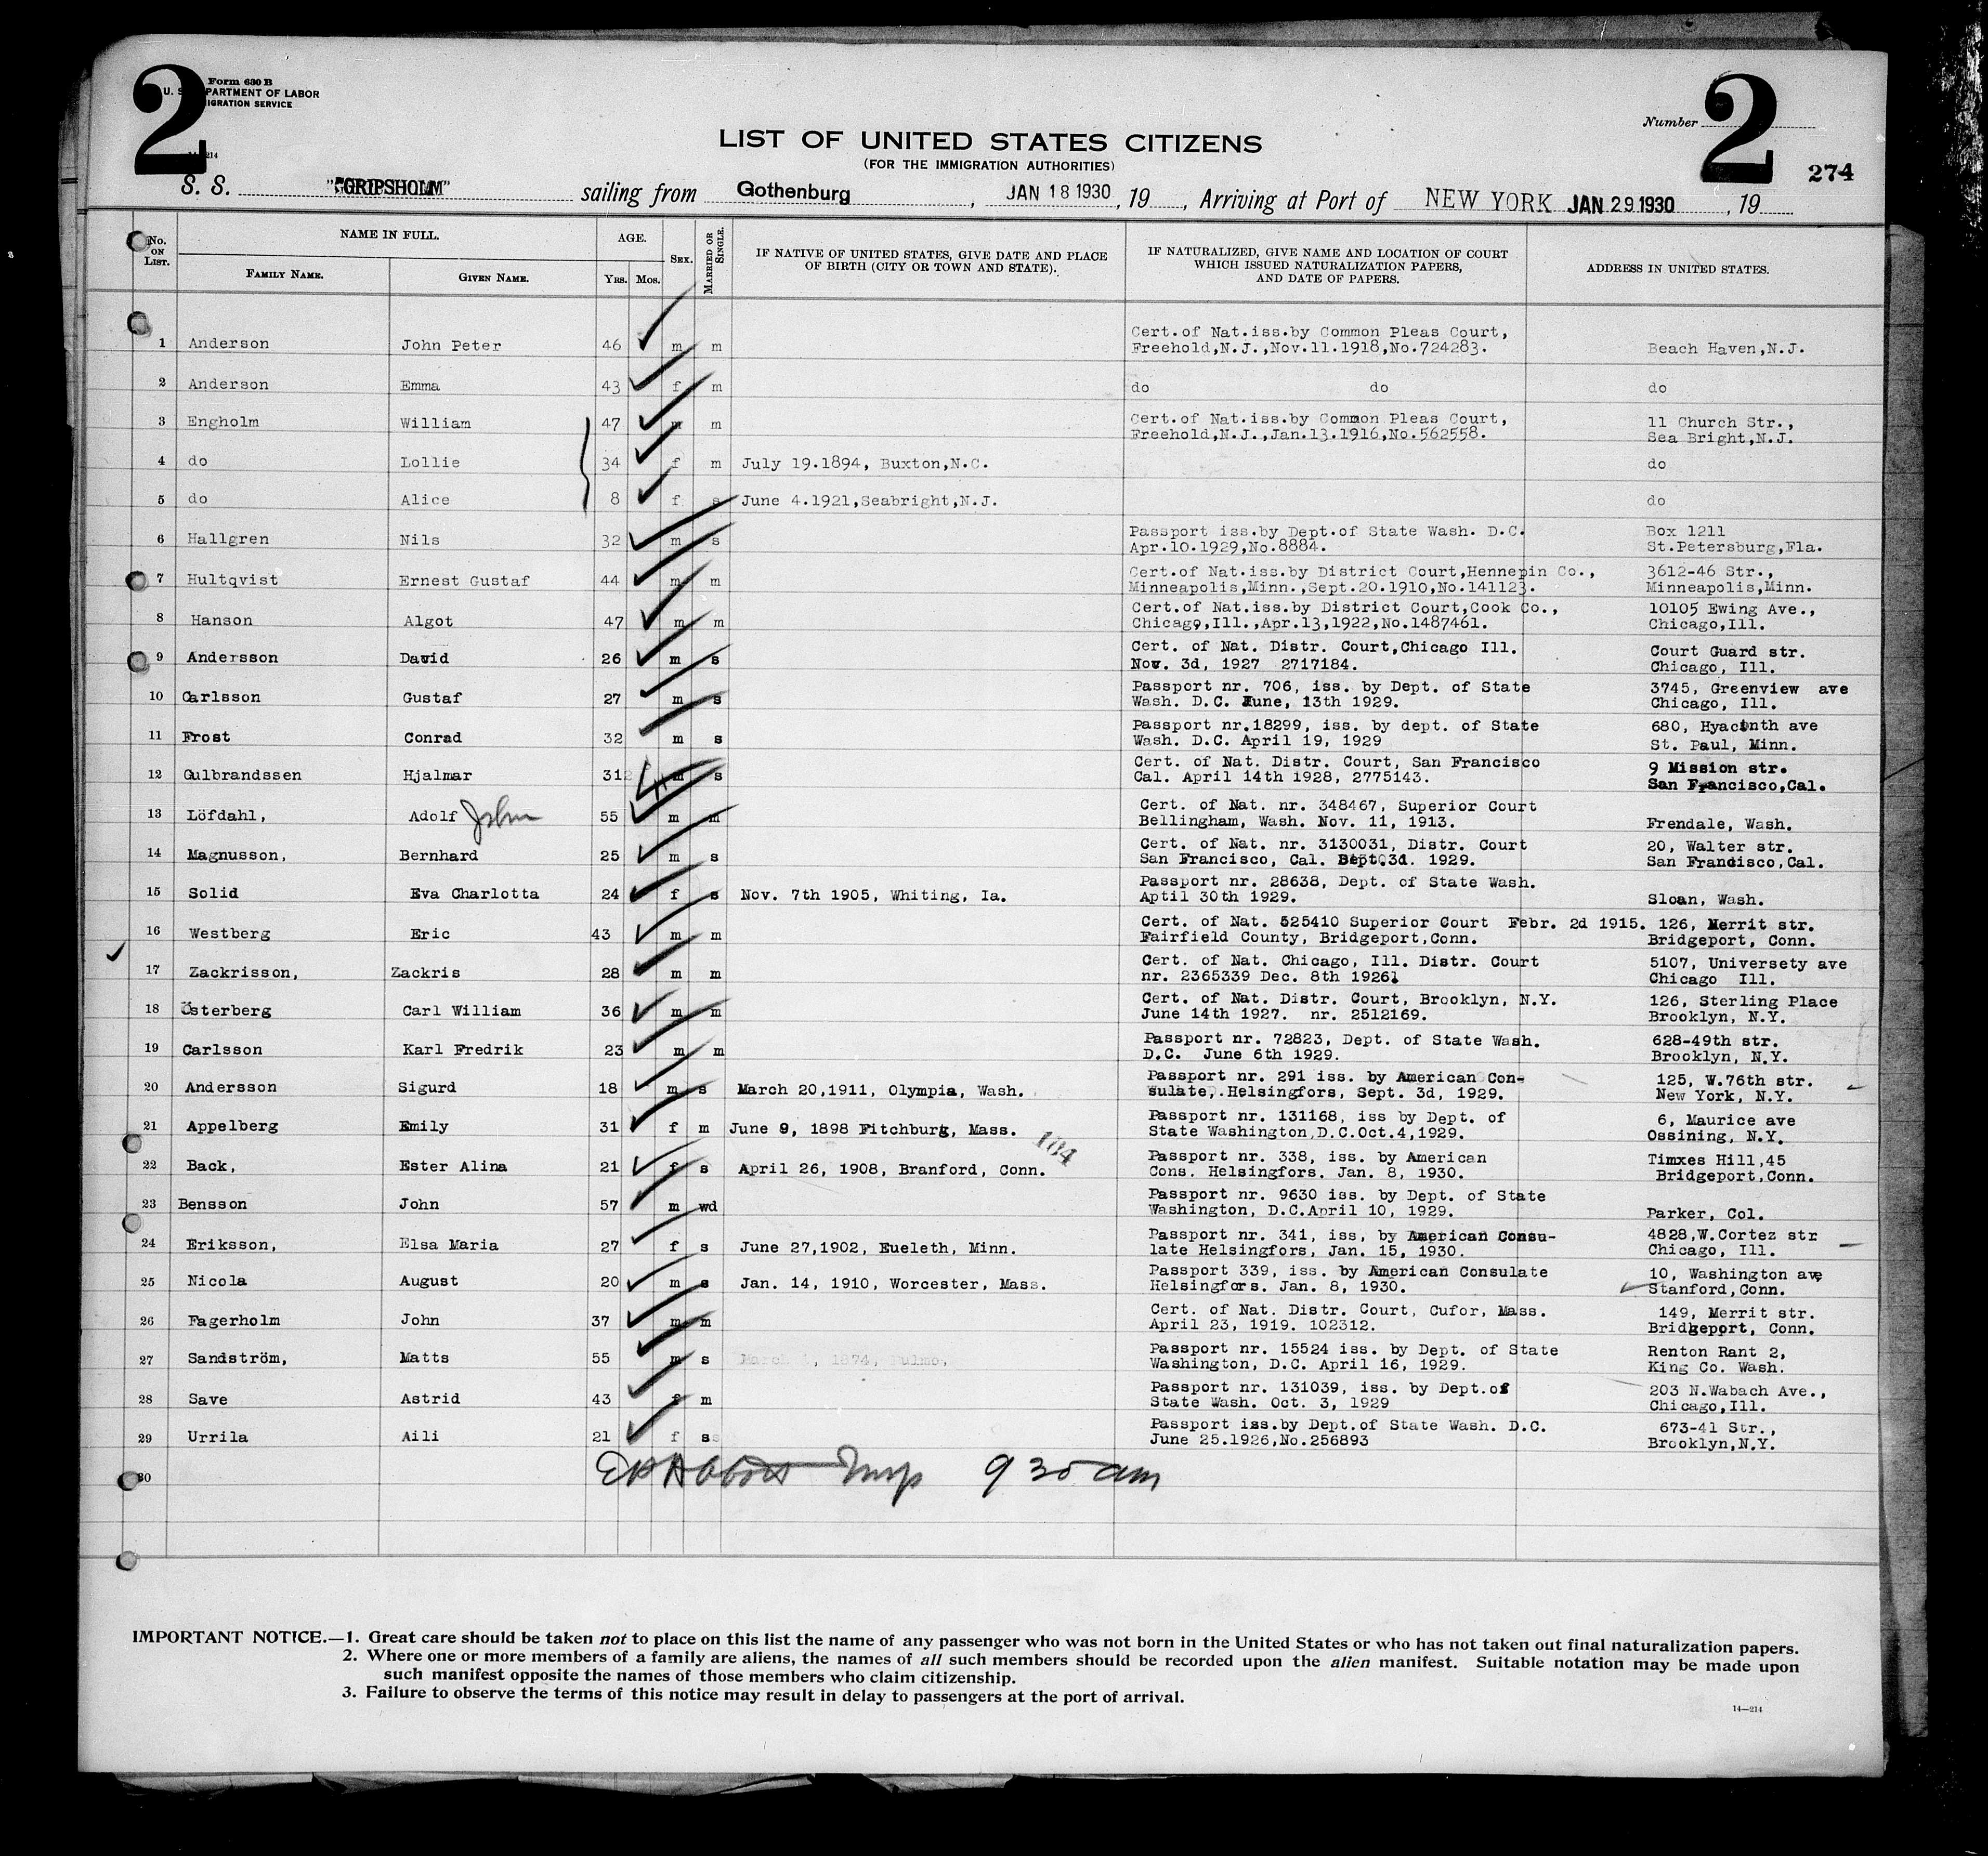 2
Form 630 B
U. S. DEPARTMENT OF LABOR
IMMIGRATION SERVICE
14-214
Number 2
274
LIST OF UNITED STATES CITIZENS
(FOR THE IMMIGRATION AUTHORITIES)
S. S. "GRIPSHOLM" sailing from Gothenburg, JAN 18 1930, 19 , Arriving at Port of NEW YORK JAN 29 1930, 19
No. ON LIST. NAME IN FULL. AGE. SEX. MARRIED OR SINGLE. IF NATIVE OF UNITED STATES, GIVE DATE AND PLACE OF BIRTH (CITY OR TOWN AND STATE). IF NATURALIZED, GIVE NAME AND LOCATION OF COURT WHICH ISSUED NATURALIZATION PAPERS, AND DATE OF PAPERS. ADDRESS IN UNITED STATES.
FAMILY NAME. GIVEN NAME. YRS. MOS.
Cert.of Nat.iss.by Common Pleas Court,
1 Anderson John Peter 46 m m Freehold,N.J.,Nov.11.1918,No.724283. Beach Haven,N.J.
2 Anderson Emma 43 f m do do do
3 Engholm William 47 m Cert.of Nat.iss.by Common Pleas Court, 11 Church Str.,
Freehold,N.J.,Jan.13.1916,No.562558. Sea Bright,N.J.
4 do Lollie 34 f m July 19.1894, Buxton,N.C. do
5 do Alice 8 f s June 4.1921,Seabright,N.J. do
6 Hallgren Nils 32 m s Passport iss.by Dept.of State Wash. D.C. Box 1211
Apr.10.1929,No.8884. St.Petersburg,Fla.
7 Hultqvist Ernest Gustaf 44 m m Cert.of Nat.iss.by District Court,Hennepin Co., 3612-46 Str.,
Minneapolis,Minn.,Sept.20.1910,No.141123. Minneapolis,Minn.
8 Hanson Algot 47 m m Cert.of Nat.iss.by District Court,Cook Co., 10105 Ewing Ave.,
Chicago,Ill.,Apr.13,1922,No.1487461. Chicago,Ill.
9 Andersson David 26 m s Cert. of Nat. Distr. Court,Chicago Ill. Court Guard str.
Nov. 3d, 1927 2717184. Chicago, Ill.
10 Carlsson Gustaf 27 m s Passport nr. 706, iss. by Dept. of State 3745, Greenview ave
Wash. D.C. June, 13th 1929. Chicago, Ill.
11 Frost Conrad 32 m s Passport nr.18299, iss. by dept. of State 680, Hyacinth ave
Wash. D.C. April 19, 1929 St. Paul, Minn.
12 Gulbrandssen Hjalmar 31 m s Cert. of Nat. Distr. Court, San Francisco 9 Mission str.
Cal. April 14th 1928, 2775143. San Francisco,Cal.
13 Löfdahl, Adolf John 55 m m Cert. of Nat. nr. 348467, Superior Court
Bellingham, Wash. Nov. 11, 1913. Frendale, Wash.
14 Magnusson, Bernhard 25 m s Cert. of Nat. nr. 3130031, Distr. Court 20, Walter str.
San Francisco, Cal. Sept.3d. 1929. San Francisco,Cal.
15 Solid Eva Charlotta 24 f s Nov. 7th 1905, Whiting, Ia. Passport nr. 28638, Dept. of State Wash.
Aptil 30th 1929. Sloan, Wash.
16 Westberg Eric 43 m m Cert. of Nat. 525410 Superior Court Febr. 2d 1915. 126, Merrit str.
Fairfield County, Bridgeport,Conn. Bridgeport, Conn.
17 Zackrisson, Zackris 28 m m Cert. of Nat. Chicago, Ill. Distr. Court 5107, Universety ave
nr. 2365339 Dec. 8th 1926. Chicago Ill.
18 Österberg Carl William 36 m m Cert. of Nat. Distr. Court, Brooklyn, N.Y. 126, Sterling Place
June 14th 1927. nr. 2512169. Brooklyn, N.Y.
19 Carlsson Karl Fredrik 23 m m Passport nr. 72823, Dept. of State Wash. 628-49th str.
D.C. June 6th 1929. Brooklyn, N.Y.
20 Andersson Sigurd 18 m s March 20,1911, Olympia, Wash. Passport nr. 291 iss. by American Con- 125, W.76th str.
sulate, Helsingfors, Sept. 3d, 1929. New York, N.Y.
21 Appelberg Emily 31 f m June 9, 1898 Fitchburg, Mass. Passport nr. 131168, iss by Dept. of 6, Maurice ave
State Washington,D.C.Oct.4,1929. Ossining, N.Y.
184
22 Back, Ester Alina 21 f s April 26, 1908, Branford, Conn. Passport nr. 338, iss. by American Timxes Hill,45
Cons. Helsingfors. Jan. 8, 1930. Bridgeport,Conn.
23 Bensson John 57 m wd Passport nr. 9630 iss. by Dept. of State
Washington, D.C.April 10, 1929. Parker, Col.
24 Eriksson, Elsa Maria 27 f s June 27,1902, Eueleth, Minn. Passport nr. 341, iss, by American Consu- 4828,W.Cortez str
late Helsingfors, Jan. 15, 1930. Chicago, Ill.
25 Nicola August 20 m s Jan. 14, 1910, Worcester, Mass. Passport 339, iss. by American Consulate 10, Washington ave
Helsingfors. Jan. 8, 1930. Stanford,Conn.
26 Fagerholm John 37 m m Cert. of Nat. Distr. Court, Cufor, Mass. 149, Merrit str.
April 23, 1919. 102312. Bridgeport, Conn.
27 Sandström, Matts 55 m s 1874, Passport nr. 15524 iss. by Dept. of State Renton Rant 2,
Washington, D.C. April 16, 1929. King Co. Wash.
28 Save Astrid 43 f m Passport nr. 131039, iss. by Dept.of 203 N.Wabach Ave.,
State Wash. Oct. 3, 1929 Chicago,Ill.
29 Urrila Aili 21 f s Passport iss.by Dept.of State Wash. D.C. 673-41 Str.,
June 25.1926,No.256893 Brooklyn,N.Y.
30 Abbott Insp 9 30 am
IMPORTANT NOTICE.—1. Great care should be taken not to place on this list the name of any passenger who was not born in the United States or who has not taken out final naturalization papers.
2. Where one or more members of a family are aliens, the names of all such members should be recorded upon the alien manifest. Suitable notation may be made upon
such manifest opposite the names of those members who claim citizenship.
3. Failure to observe the terms of this notice may result in delay to passengers at the port of arrival.
14—214